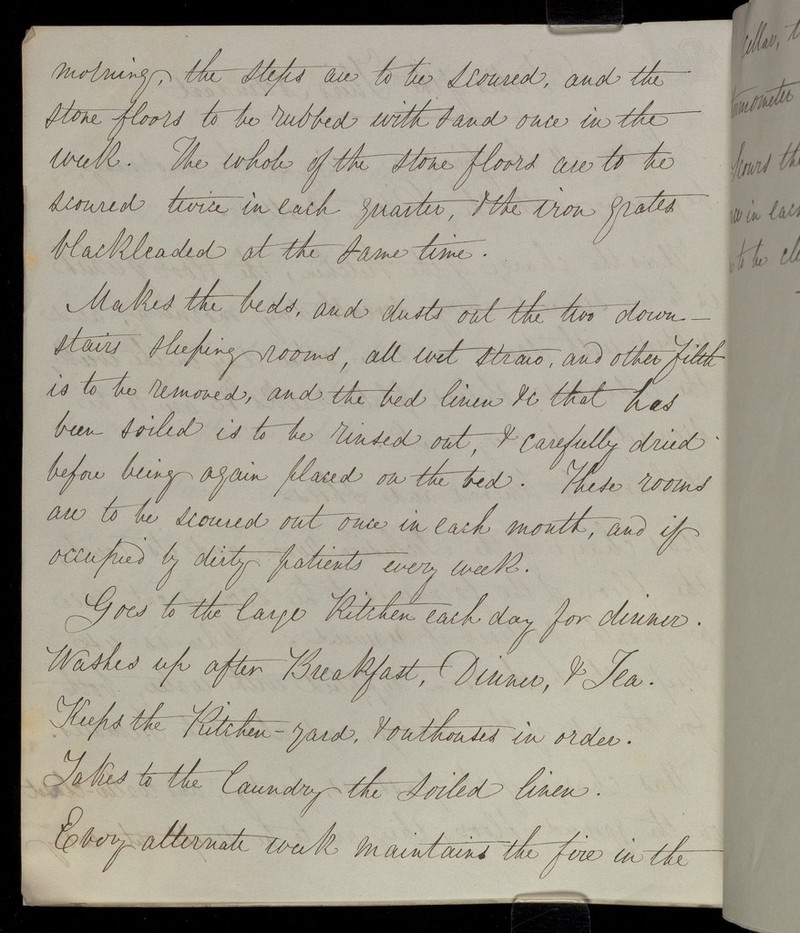 morning, the steps are to be scoured, and the
stone floors to be rubbed with sand once in the
week. The whole of the stone floors are to be
scoured twice in each quarter, & the iron grates
blackleaded at the same time.
Makes the beds, and dusts out the two down-
stairs sleeping rooms, all wet straw, and other filth
is to be removed, and the bed linen &c that has
been soiled is to be rinsed out, & carefully dried
before being again placed on the bed. These rooms
are to be scoured out once in each month, and if
occupied by dirty patients every week.
Goes to the large Kitchen each day for dinner.
Washes up after Breakfast, Dinner, & Tea.
Keeps the Kitchen-yard, & outhouses in order.
Takes to the laundry the soiled linen.
Every alternate week maintains the fire in the
cellar, t
scours th
in eac
to be cle